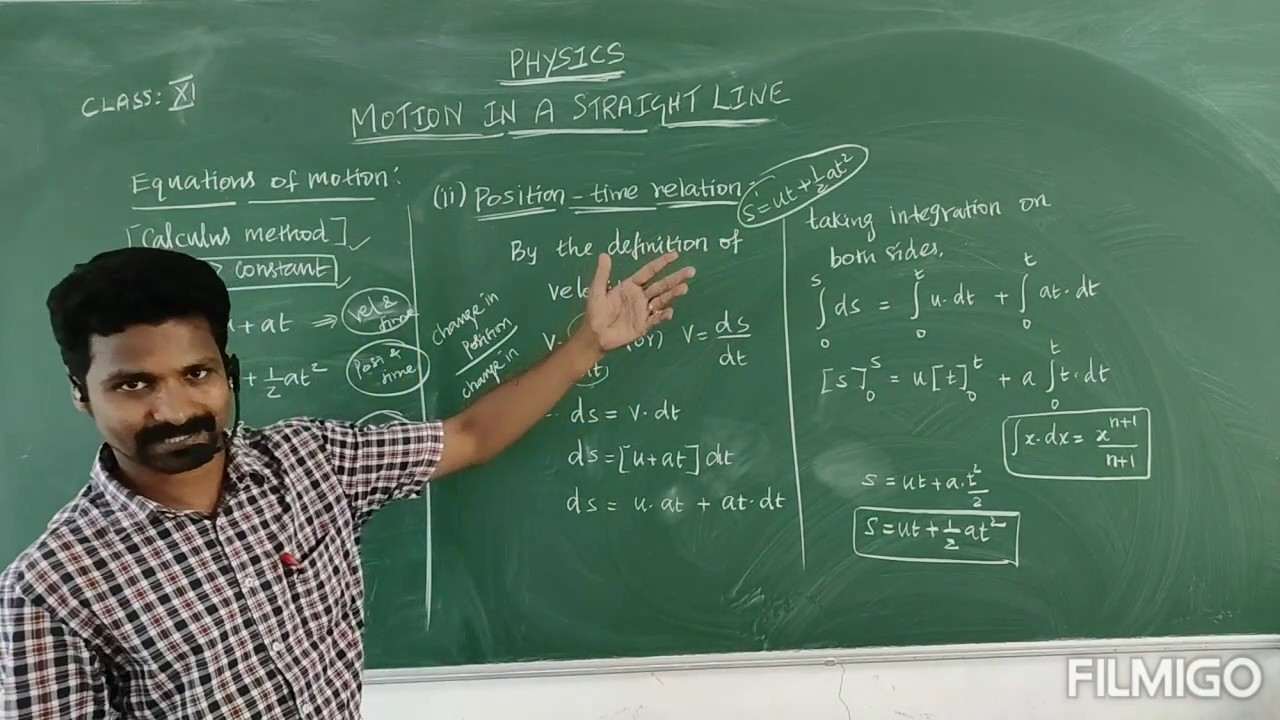 PHYSICS
CLASS: XI
MOTION IN A STRAIGHT LINE
Equations of motion:
[Calculus method]
constant
+ at ⇒ vel & time
+ ½at² Posi & time
(ii) Position - time relation
s=ut+½at²
By the definition of
change in position
change in
V = ds/dt
ds = v·dt
ds = [u+at]dt
ds = u·at + at·dt
taking integration on
both sides,
∫₀ˢ ds = ∫₀ᵗ u·dt + ∫₀ᵗ at·dt
[s]₀ˢ = u[t]₀ᵗ + a ∫₀ᵗ t·dt
∫x·dx = xⁿ⁺¹/n+1
s = ut + a·t²/2
s = ut + ½at²
FILMIGO